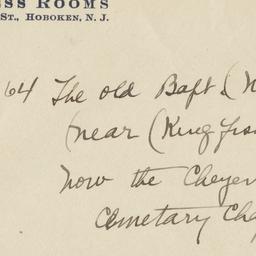 ESS ROOMS
ST., HOBOKEN, N. J.
64 The old Bapt
(near (King
now the Cheyen
Cemetary Cha